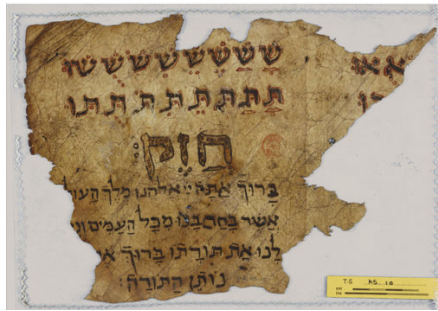 שָ שַ שֵ שֶ שִ שְ שֹ שו
תָ תַ תֵ תֶ תִ תְ תֹ תו
חֲזַק:
בָּרוּךְ אַתָּה יי אלהנו מֶלֶךְ הָעול
אֲשֶׁר בָּחַר בָּנוּ מִכָּל הָעַמִּים ונ
לָנוּ אֶת תּוֹרָתוֹ בָּרוּךְ א
נוֹתֵן הַתּוֹרָה:
T-S K5.10